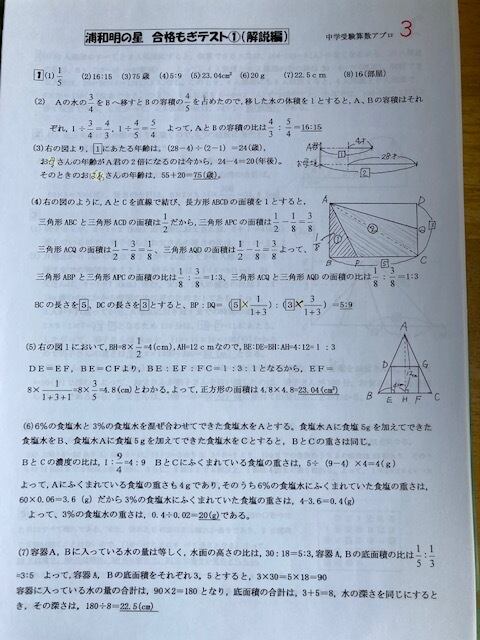 浦和明の星 合格もぎテスト①(解説編)
中学受験算数アプロ 3
1 (1) 1/5 (2)16:15 (3)75歳 (4)5:9 (5)23.04cm² (6)20g (7)22.5cm (8)16(部屋)
(2) Aの水の3/4をBへ移すとBの容積の4/5を占めたので,移した水の体積を1とすると,A,Bの容積はそれ
ぞれ,1÷3/4=4/3,1÷4/5=5/4 よって,AとBの容積の比は4/3:5/4=16:15
(3)右の図より,1にあたる年齢は,(28-4)÷(2-1)=24(歳),
お母さんの年齢がA君の2倍になるのは今から,24-4=20(年後)。
そのときのお母さんの年齢は,55+20=75(歳)。
A君 4才 1
お母さん 28才 2
(4)右の図のように,AとCを直線で結び,長方形ABCDの面積を1とすると,
三角形ABCと三角形ACDの面積は1/2だから,三角形APCの面積は1/2-1/8=3/8
三角形ACQの面積は1/2-3/8=1/8、三角形AQDの面積は1/2-1/8=3/8よって、
三角形ABPと三角形APCの面積の比は1/8:3/8=1:3、三角形ACQと三角形AQDの面積の比は1/8:3/8=1:3
BCの長さを5、DCの長さを3とすると、BP:DQ=(5×1/(1+3)):(3×3/(1+3))=5:9
A D Q B P C 5 3
(5)右の図1において,BH=8×1/2=4(cm),AH=12cmなので,BE:DE=BH:AH=4:12=1:3
DE=EF, BE=CFより, BE:EF:FC=1:3:1となるから,EF=
8×1/(1+3+1)=8×3/5=4.8(cm)とわかる。よって,正方形の面積は4.8×4.8=23.04(cm²)
A D G B E H F C
(6)6%の食塩水と3%の食塩水を混ぜ合わせてできた食塩水をAとする。食塩水Aに食塩5gを加えてできた
食塩水をB、食塩水Aに食塩5gを加えてできた食塩水をCとすると、BとCの重さは同じ。
BとCの濃度の比は,1:9/4=4:9 BとCにふくまれている食塩の重さは、5÷(9-4)×4=4(g)
よって,Aにふくまれている食塩の重さも4gであり,そのうち6%の食塩水にふくまれていた食塩の重さは,
60×0.06=3.6(g)だから3%の食塩水にふくまれていた食塩の重さは,4-3.6=0.4(g)
よって、3%の食塩水の重さは,0.4÷0.02=20(g)である。
(7)容器A,Bに入っている水の量は等しく,水面の高さの比は,30:18=5:3,容器A,Bの底面積の比は1/5:1/3
=3:5 よって,容器A,Bの底面積をそれぞれ3,5とすると,3×30=5×18=90
容器に入っている水の量の合計は,90×2=180となり,底面積の合計は,3+5=8,水の深さを同じにすると
き,その深さは,180÷8=22.5(cm)